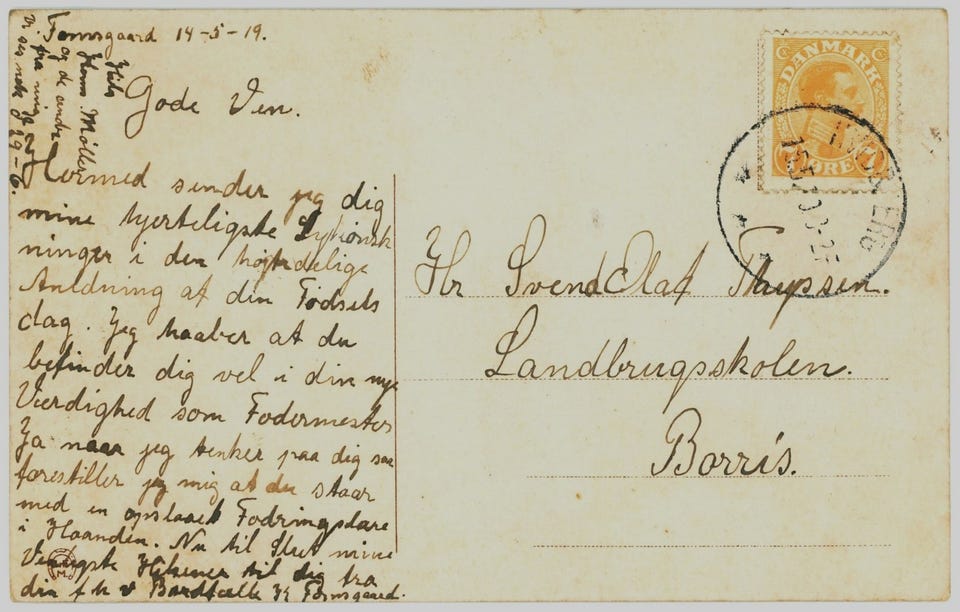 Tomsgaard 14-5-19.
Hils
Herr Møller
og de andre
fra mig
Vi ses nok d 29-6.
Gode Ven.
Hermed sender jeg dig
mine hjerteligste Lykønsk
ninger i den højtidelige
Anledning af din Fødsels
dag. Jeg haaber at du
befinder dig vel i din nye
Værdighed som Fodermester
Ja naar jeg tenker paa dig saa
forestiller jeg mig at du staar
med en opslaaet Fodringslære
i Haanden. Nu til Slut mine
Venligste Hilsener til dig fra
din f h v Bordfælle Tomsgaard.
DANMARK
7 ØRE 7
Hr Svend Olaf Thyssen.
Landbrugsskolen.
Borris.